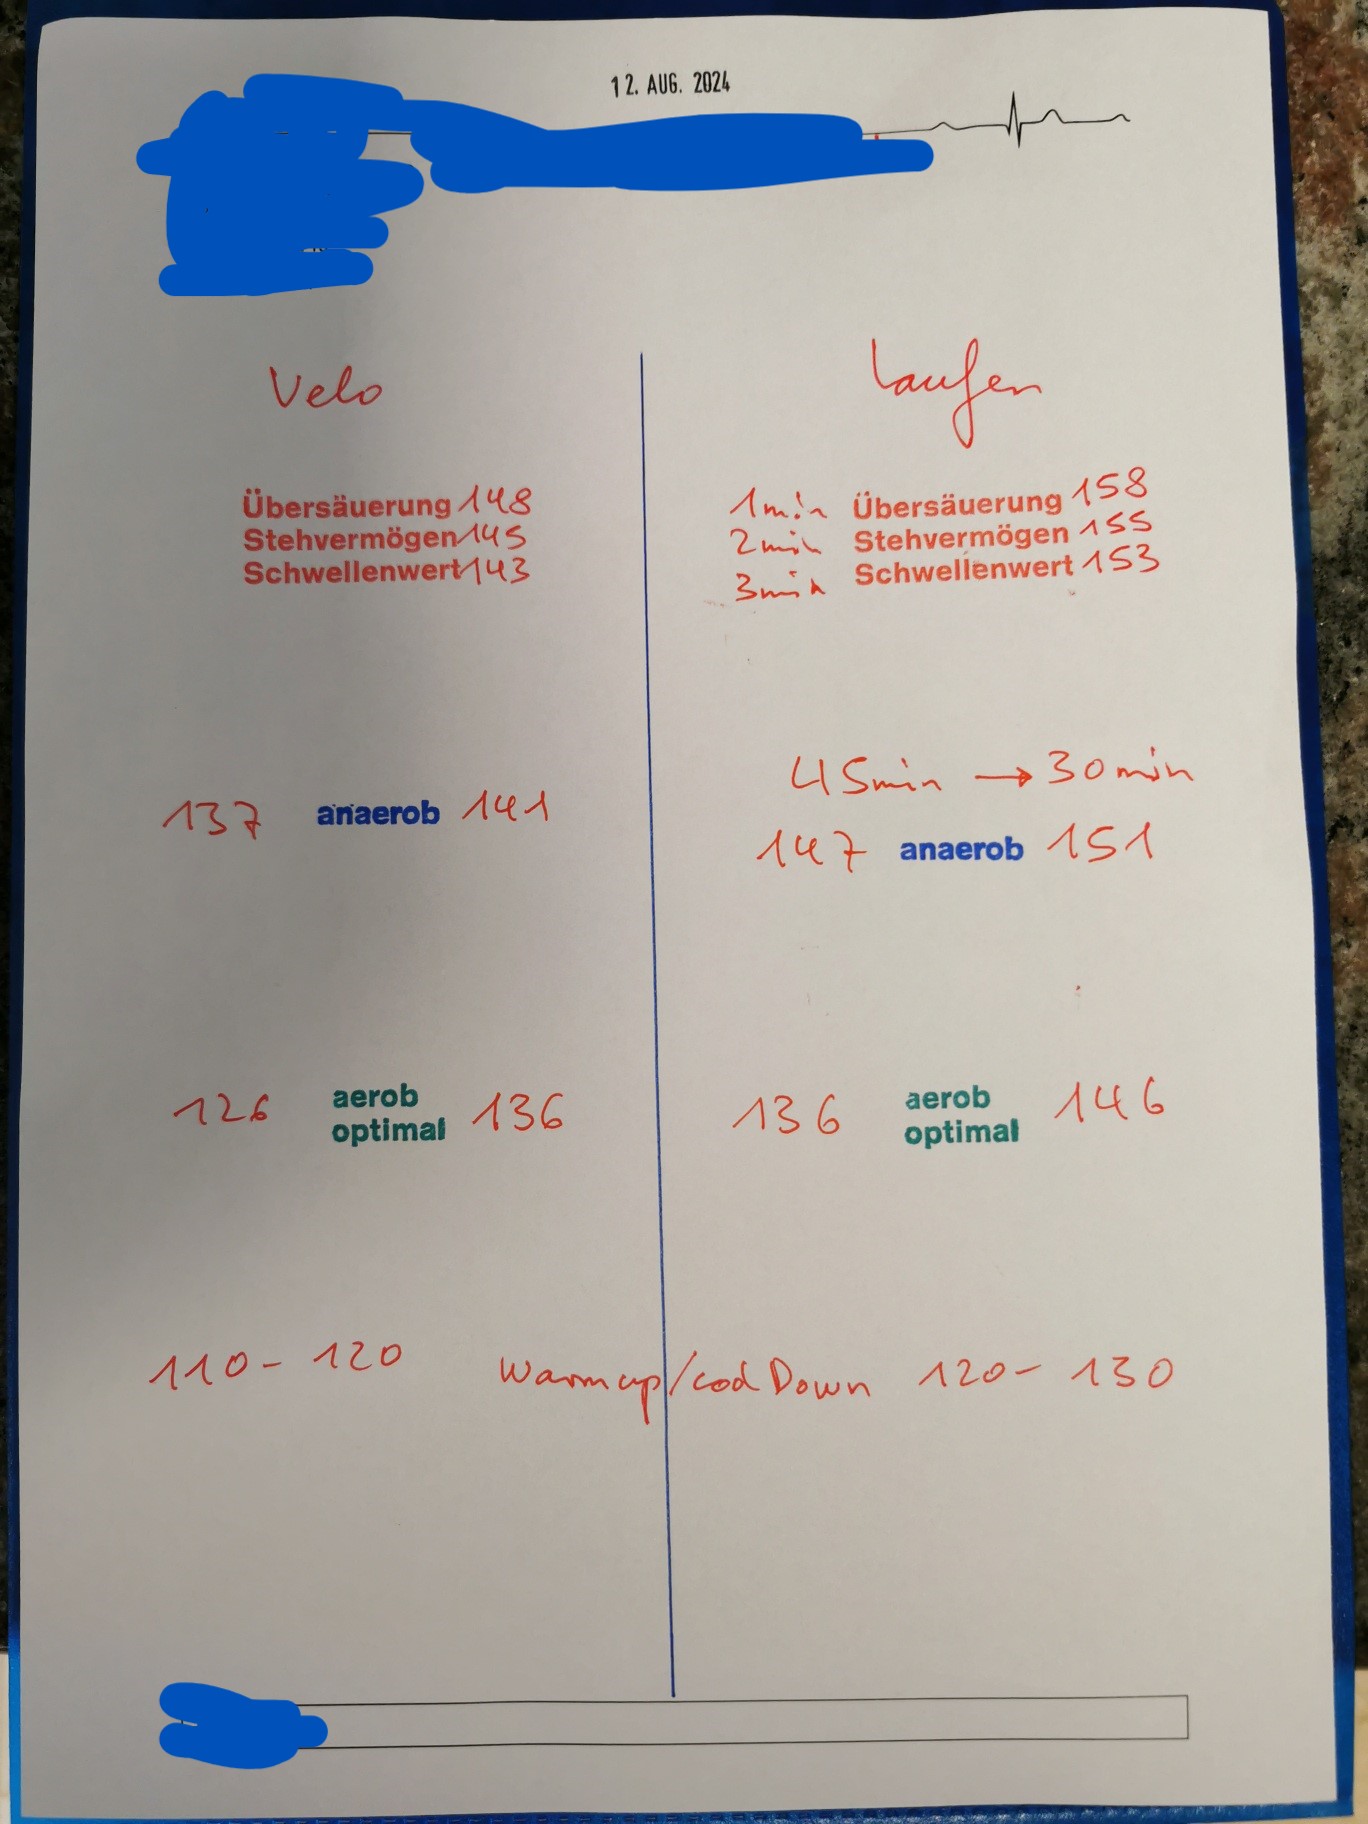 12. AUG. 2024
Velo
Übersäuerung 148
Stehvermögen 145
Schwellenwert 143
137 anaerob 141
126 aerob optimal 136
110 - 120
Laufen
1min Übersäuerung 158
2min Stehvermögen 155
3min Schwellenwert 153
45min → 30min
147 anaerob 151
136 aerob optimal 146
Warmup/cool Down 120 - 130